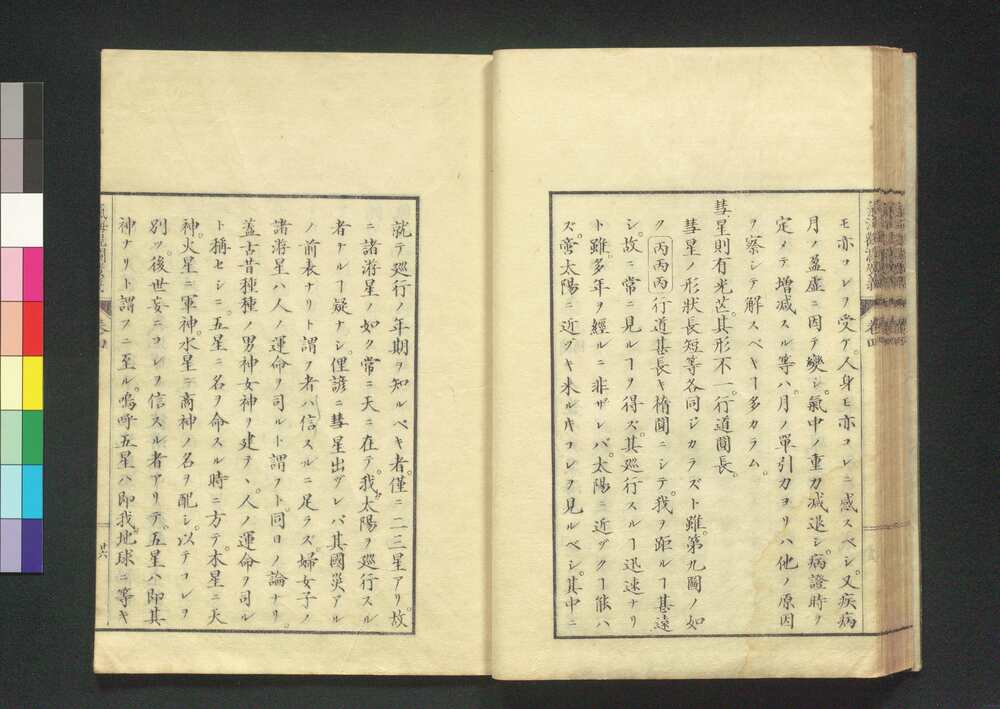 モ亦コレヲ受ケ。人身モ亦コレニ感スベシ。又疾病
月ノ盈虚ニ因テ變シ。氣中ノ重力減退シ。病證時ヲ
定メテ増减スル等ハ。月ノ單引力ヨリハ他ノ原因
ヲ察シテ解スベキヿ多カラム。
彗星則有光芒。其形不一。行道圓長。
彗星ノ形狀長短等各同ジカラズト雖。第九圖ノ如
ク丙丙丙行道甚長キ楕圓ニシテ。我ヲ距ルヿ甚遠
シ。故ニ常ニ見ルヿヲ得ズ。其巡行スルヿ迅速ナリ
ト雖。多年ヲ經ルニ非ザレバ。太陽ニ近ヅクヿ能ハ
ズ。啻太陽ニ近ヅキ来ル𪜈コレヲ見ルベシ。其中ニ
卷四
就テ巡行ノ年期ヲ知ルベキ者。僅ニ二三星アリ。故
ニ諸游星ノ如ク常ニ天ニ在テ。我太陽ヲ巡行スル
者ナルヿ疑ナシ。俚諺ニ彗星出ヅレバ其國災アル
ノ前表ナリト謂フ者ハ信スルニ足ラズ。婦女子ノ
諸游星ハ人ノ運命ヲ司ルト謂フト。同日ノ論ナリ。
蓋古昔種種ノ男神女神ヲ建テヽ。人ノ運命ヲ司ル
ト稱セシニ。五星ニ名ヲ命スル時ニ方テ。木星ニ天
神。火星ニ軍神。水星ニ商神ノ名ヲ配シ。以テコレヲ
別ツ。後世妄ニコレヲ信スル者アリテ。五星ハ即其
神ナリト謂フニ至ル。嗚呼五星ハ即我地球ニ等キ
卷四
廿六